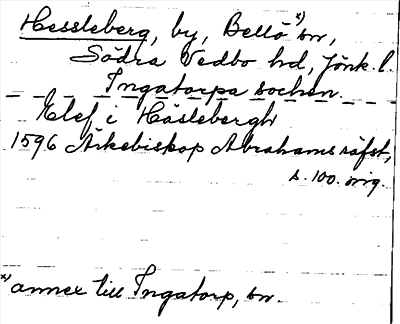 Hessleberg, by, Bellö x) sn,
Södra Vedbo hd, Jönk. l.
Ingatorpa socken.
Elef i Häslebergh
1596 Ärkebiskop Abrahams räfst,
s. 100. orig.
x) annex till Ingatorp, sn.